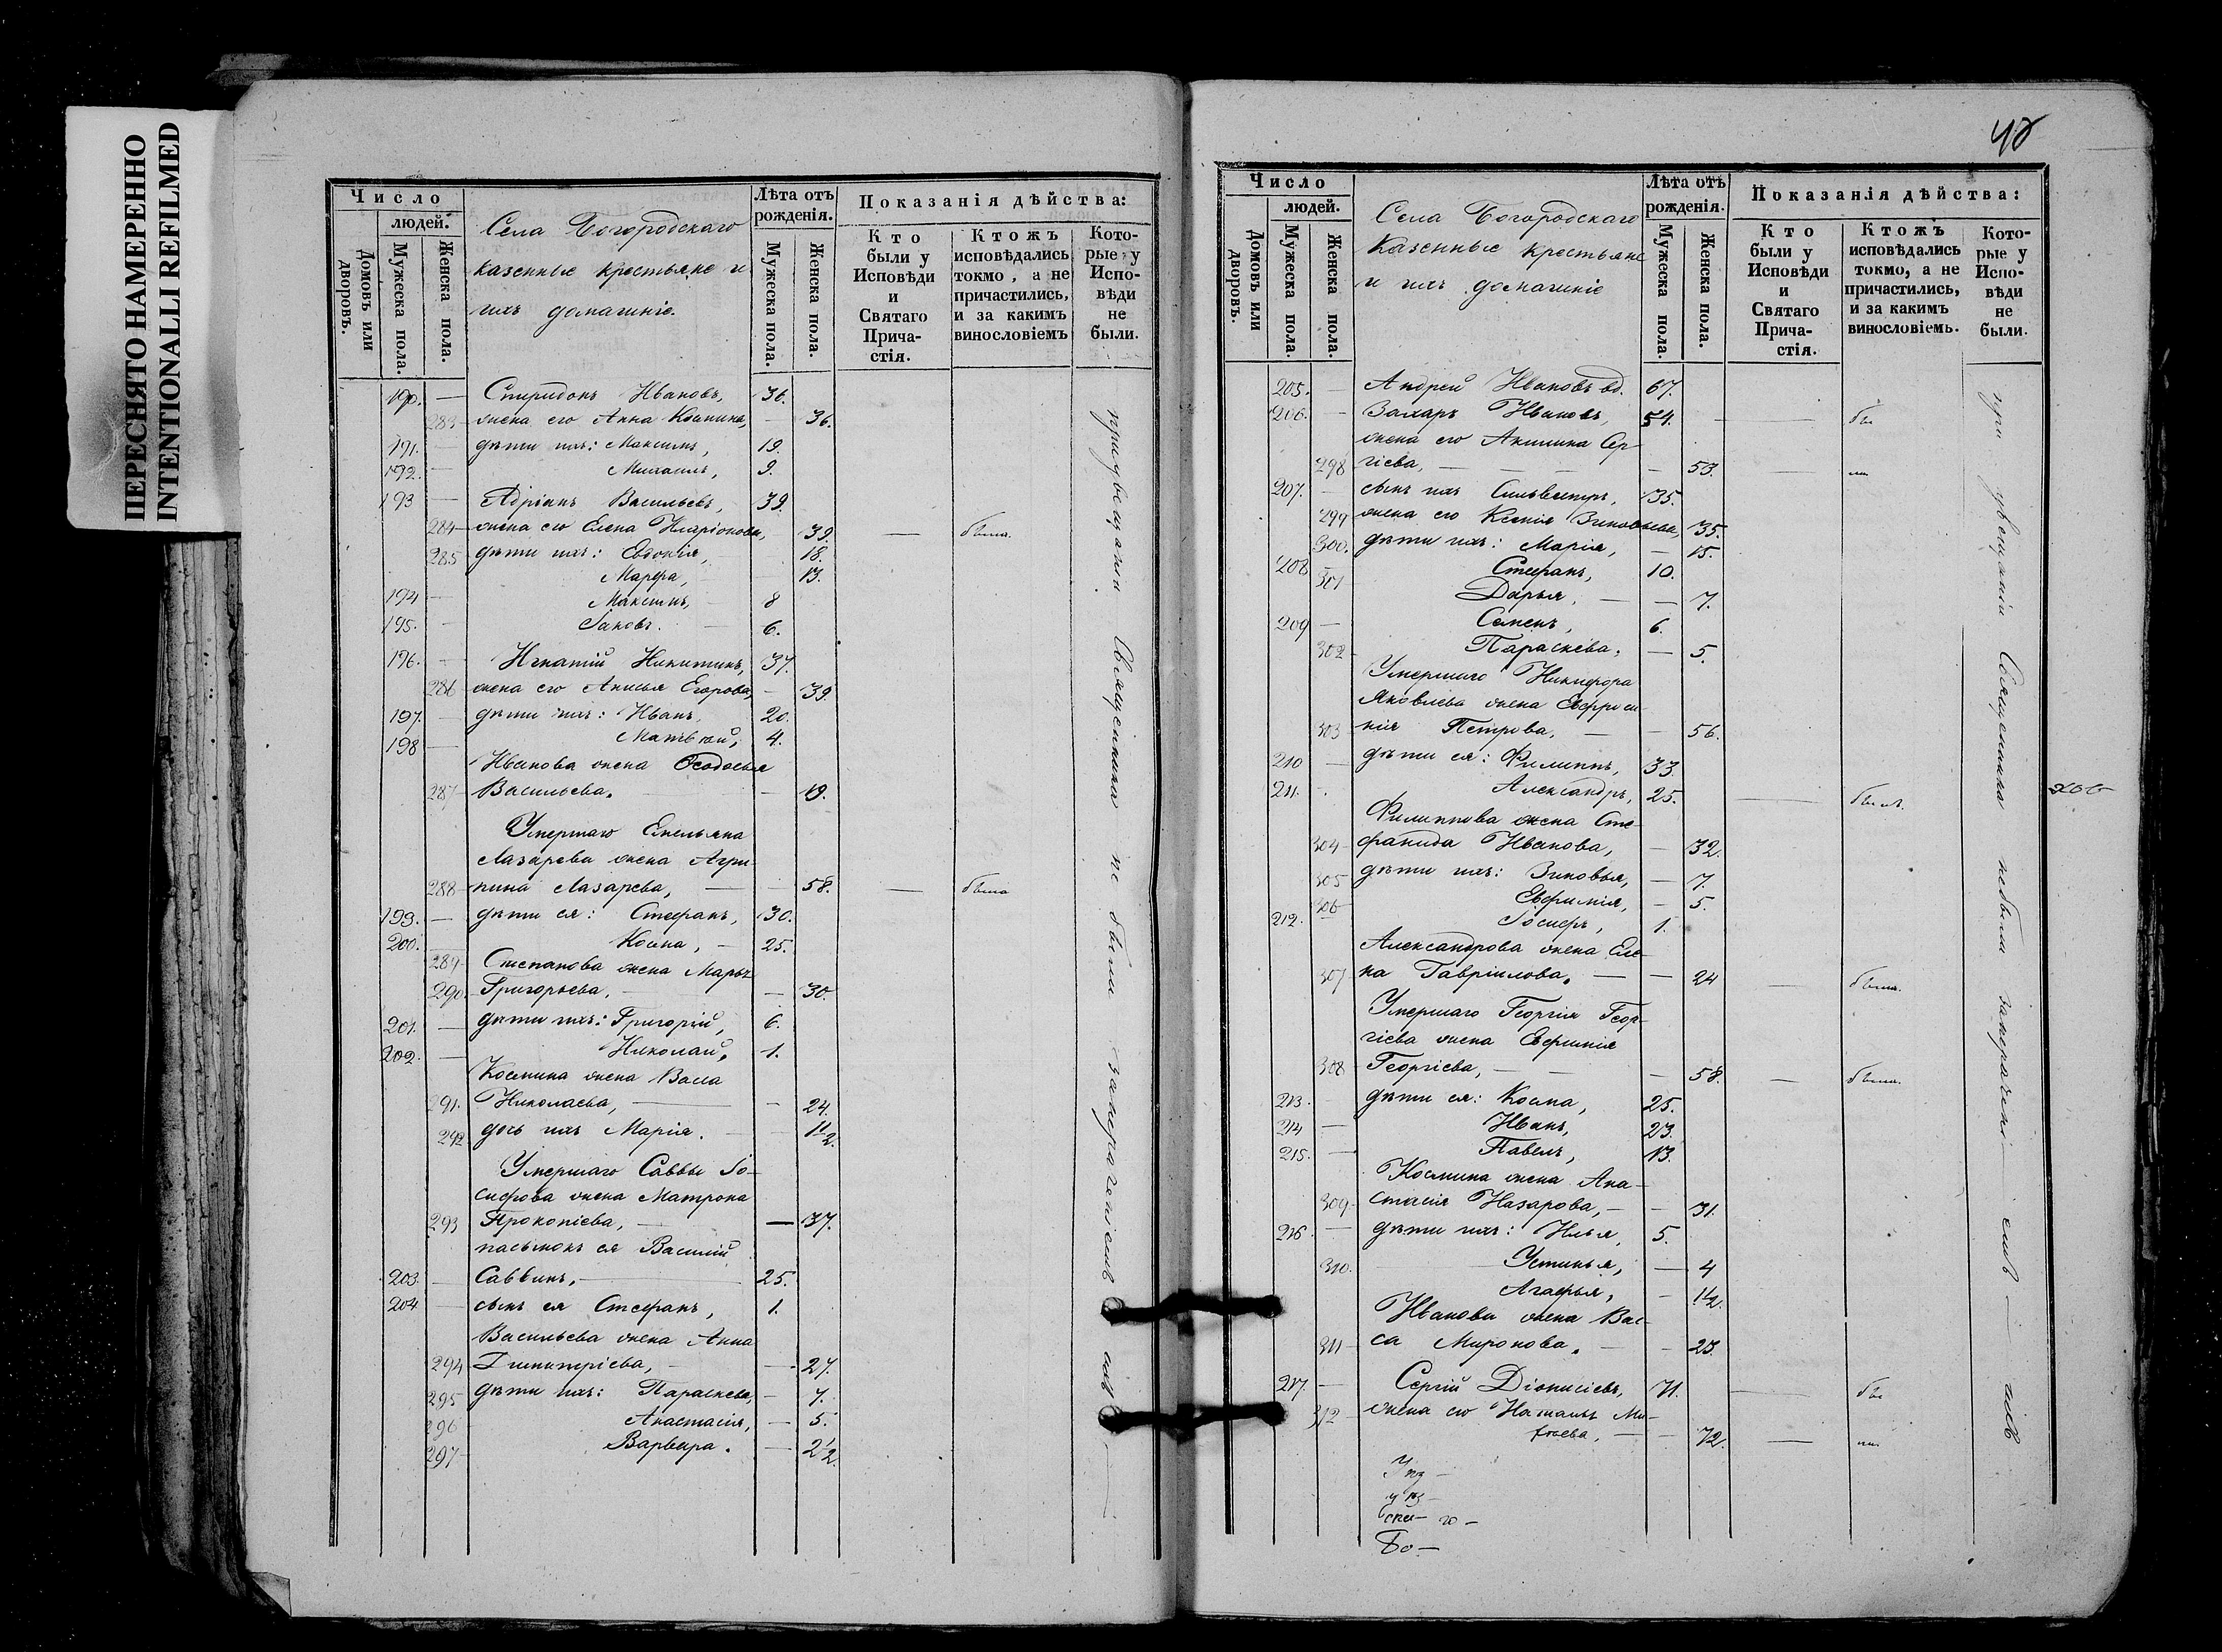 ПЕРЕСНЯТО НАМЕРЕННО
INTENTIONALLI REFILMED
Число
людей.
Домовъ или дворовъ.
Мужеска пола.
Женска пола.
Села Богородскаго
казенные крестьяне и
ихъ домашніе.
Лѣта отъ рожденія.
Мужеска пола.
Женска пола.
Показанія дѣйства:
Кто были у Исповѣди и Святаго Прича-стія.
Ктожъ исповѣдались токмо, а не причастились, и за какимъ винословіемъ
Кото-рые у Испо-вѣди не были.
190. — Спиридонъ Ивановъ, 36.
283 жена его Анна Космина, — 36.
191. — дѣти ихъ: Максимъ, 19.
192. — Михаилъ, 9.
193 — Адріанъ Васильевъ, 39.
284 — жена его Елена Иларіонова, 39. — была.
285 дѣти ихъ: Евдокія, 18.
Марфа, 13.
194 — Максимъ, — 8
195. — Іаковъ. — 6.
196. — Игнатій Никитинъ, 37.
286 жена его Анисья Егорова, — 39.
197. — дѣти ихъ: Иванъ, 20.
198 — Матвѣй, 4.
Иванова жена Ѳеодосья
287 Васильева. — 19.
Умершаго Емельяна
Лазарева жена Агри-
288 — пина Лазарева, — 58. — была
199. — дѣти ея: Стефанъ, 30.
200. — Косма, — 25.
289 — Степанова жена Марья
290 — Григорьева, — 30.
201. — дѣти ихъ: Григорій, 6.
202. — Николай, 1.
Космина жена Васса
291. Николаева, — 24.
292 дочь ихъ Марія. — 1 1/2.
Умершаго Саввы Іо-
сифова жена Матрона
293 Прокопіева, — 37.
пасынокъ ея Василій
203. — Саввинъ, — 25.
204 — сынъ ея Стефанъ, 1.
Васильева жена Анна
294 Димитріева, — 27.
295 дѣти ихъ: Параскева, — 7.
296 Анастасія, — 5.
297 Варвара. — 2 1/2.
при увѣщаніи Священника не были
48
Число
людей.
Домовъ или дворовъ.
Мужеска пола.
Женска пола.
Села Богородскаго
казенные крестьяне
и ихъ домашніе
Лѣта отъ рожденія.
Мужеска пола.
Женска пола.
Показанія дѣйства:
Кто были у Исповѣди и Святаго Прича-стія.
Ктожъ исповѣдались токмо, а не причастились, и за какимъ винословіемъ.
Кото-рые у Испо-вѣди не были.
205. — Андрей Ивановъ вд. 67.
206. — Захаръ Ивановъ, 54. — бы
жена его Акилина Сер-
298 гіева, — 53. — ли
207. — сынъ ихъ Сильвестръ, 35.
299 жена его Ксенія Зиновьева, 35.
300. дѣти ихъ: Марія, — 15.
208 — Стефанъ, 10.
301 Дарья, — 7.
209 — Семенъ, 6.
302 — Параскева, — 5.
Умершаго Никифора
Яковлева жена Евфроси-
303 нія Петрова, — 56.
210 — дѣти ея: Филиппъ, 33.
211. Александръ, 25. — былъ.
Филиппова жена Сте-
304 — фанида Иванова, — 32.
305 дѣти ихъ: Зиновья, — 7.
306 Евфимія, — 5.
212. Іосифъ, 1.
Александрова жена Еле-
307 — на Гавріилова. — 24 — была.
Умершаго Георгія Геор-
гіева жена Евфимія
308 Георгіева, — 58. — была.
213. дѣти ея: Косма, 25.
214 — Иванъ, 23.
215. — Павелъ, 13.
Космина жена Ана-
309. стасія Назарова, — 31.
216 — дѣти ихъ: Илья, 5.
310. Устинья, — 4
Агафья, — 1 1/2.
Иванова жена Вас-
311 са Миронова. — 23.
217. — Сергій Діонисіевъ, 71. — бы
312 — жена его Наталья Ми-
хѣева, — 72. — ли.
Бо —
при увѣщаніи Священника небыли